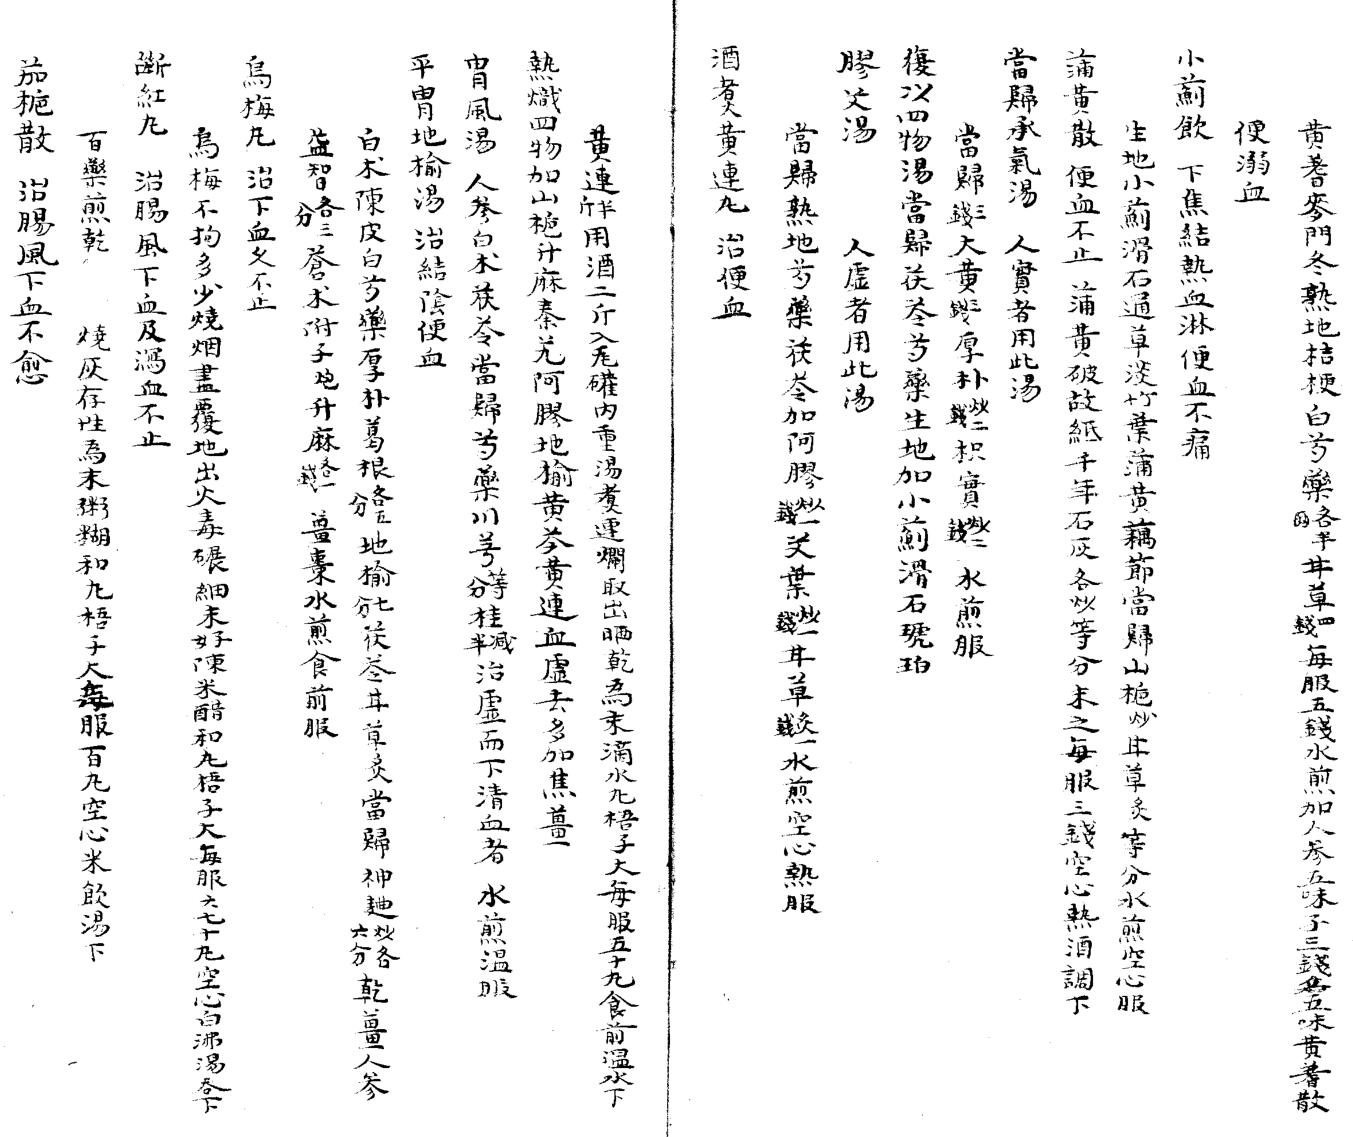 黄蓍麥門冬熟地桔梗白芍藥各半兩甘草四錢每服五錢水煎加人參五味子三錢名五味黄蓍散
便溺血
小薊飲 下焦結熱血淋便血不痛
生地小薊滑石通草淡竹葉蒲黄藕節當歸山梔炒甘草炙等分水煎空心服
蒲黄散 便血不止 蒲黄破故紙千年石灰各炒等分末之每服三錢空心熱酒調下
當歸承氣湯 人實者用此湯
當歸三錢大黄三錢厚朴炒二錢枳實炒二錢水煎服
復以四物湯當歸茯苓芍藥生地加小薊滑石琥珀
膠艾湯 人虛者用此湯
當歸熟地芍藥茯苓加阿膠炒一錢艾葉炒一錢甘草炙一錢水煎空心熱服
酒煑黄連丸 治便血
黄連半斤用酒二斤入瓦礶内重湯煑連爛取出晒乾為末滴水丸梧子大每服五十丸食前温水下
熱熾四物加山梔升麻秦艽阿膠地榆黄芩黄連血虛去多加焦薑一
胃風湯 人參白朮茯苓當歸芍藥川芎等分桂減半治虛而下清血者 水煎温服
平胃地榆湯 治結陰便血
白朮陳皮白芍藥厚朴葛根各五分地榆七分茯苓甘草炙當歸神麯炒各六分乾薑人參
益智各三分蒼朮附子炮升麻各一錢薑棗水煎食前服
烏梅丸 治下血久不止
烏梅不拘多少燒烟盡覆地出火毒碾細末好陳米醋和丸梧子大每服六七十丸空心白沸湯吞下
斷紅丸 治腸風下血及瀉血不止
百藥煎乾 燒灰存性為末粥糊和丸梧子大每服百丸空心米飲湯下
茄梔散 治腸風下血不愈